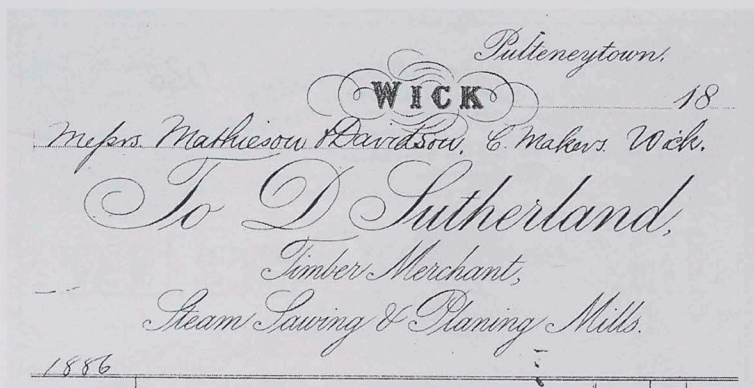 Pulteneytown.
WICK 18
Messrs. Mathieson & Davidson, C. Makers. Wick.
To D Sutherland,
Timber Merchant,
Steam Sawing & Planing Mills.
1886